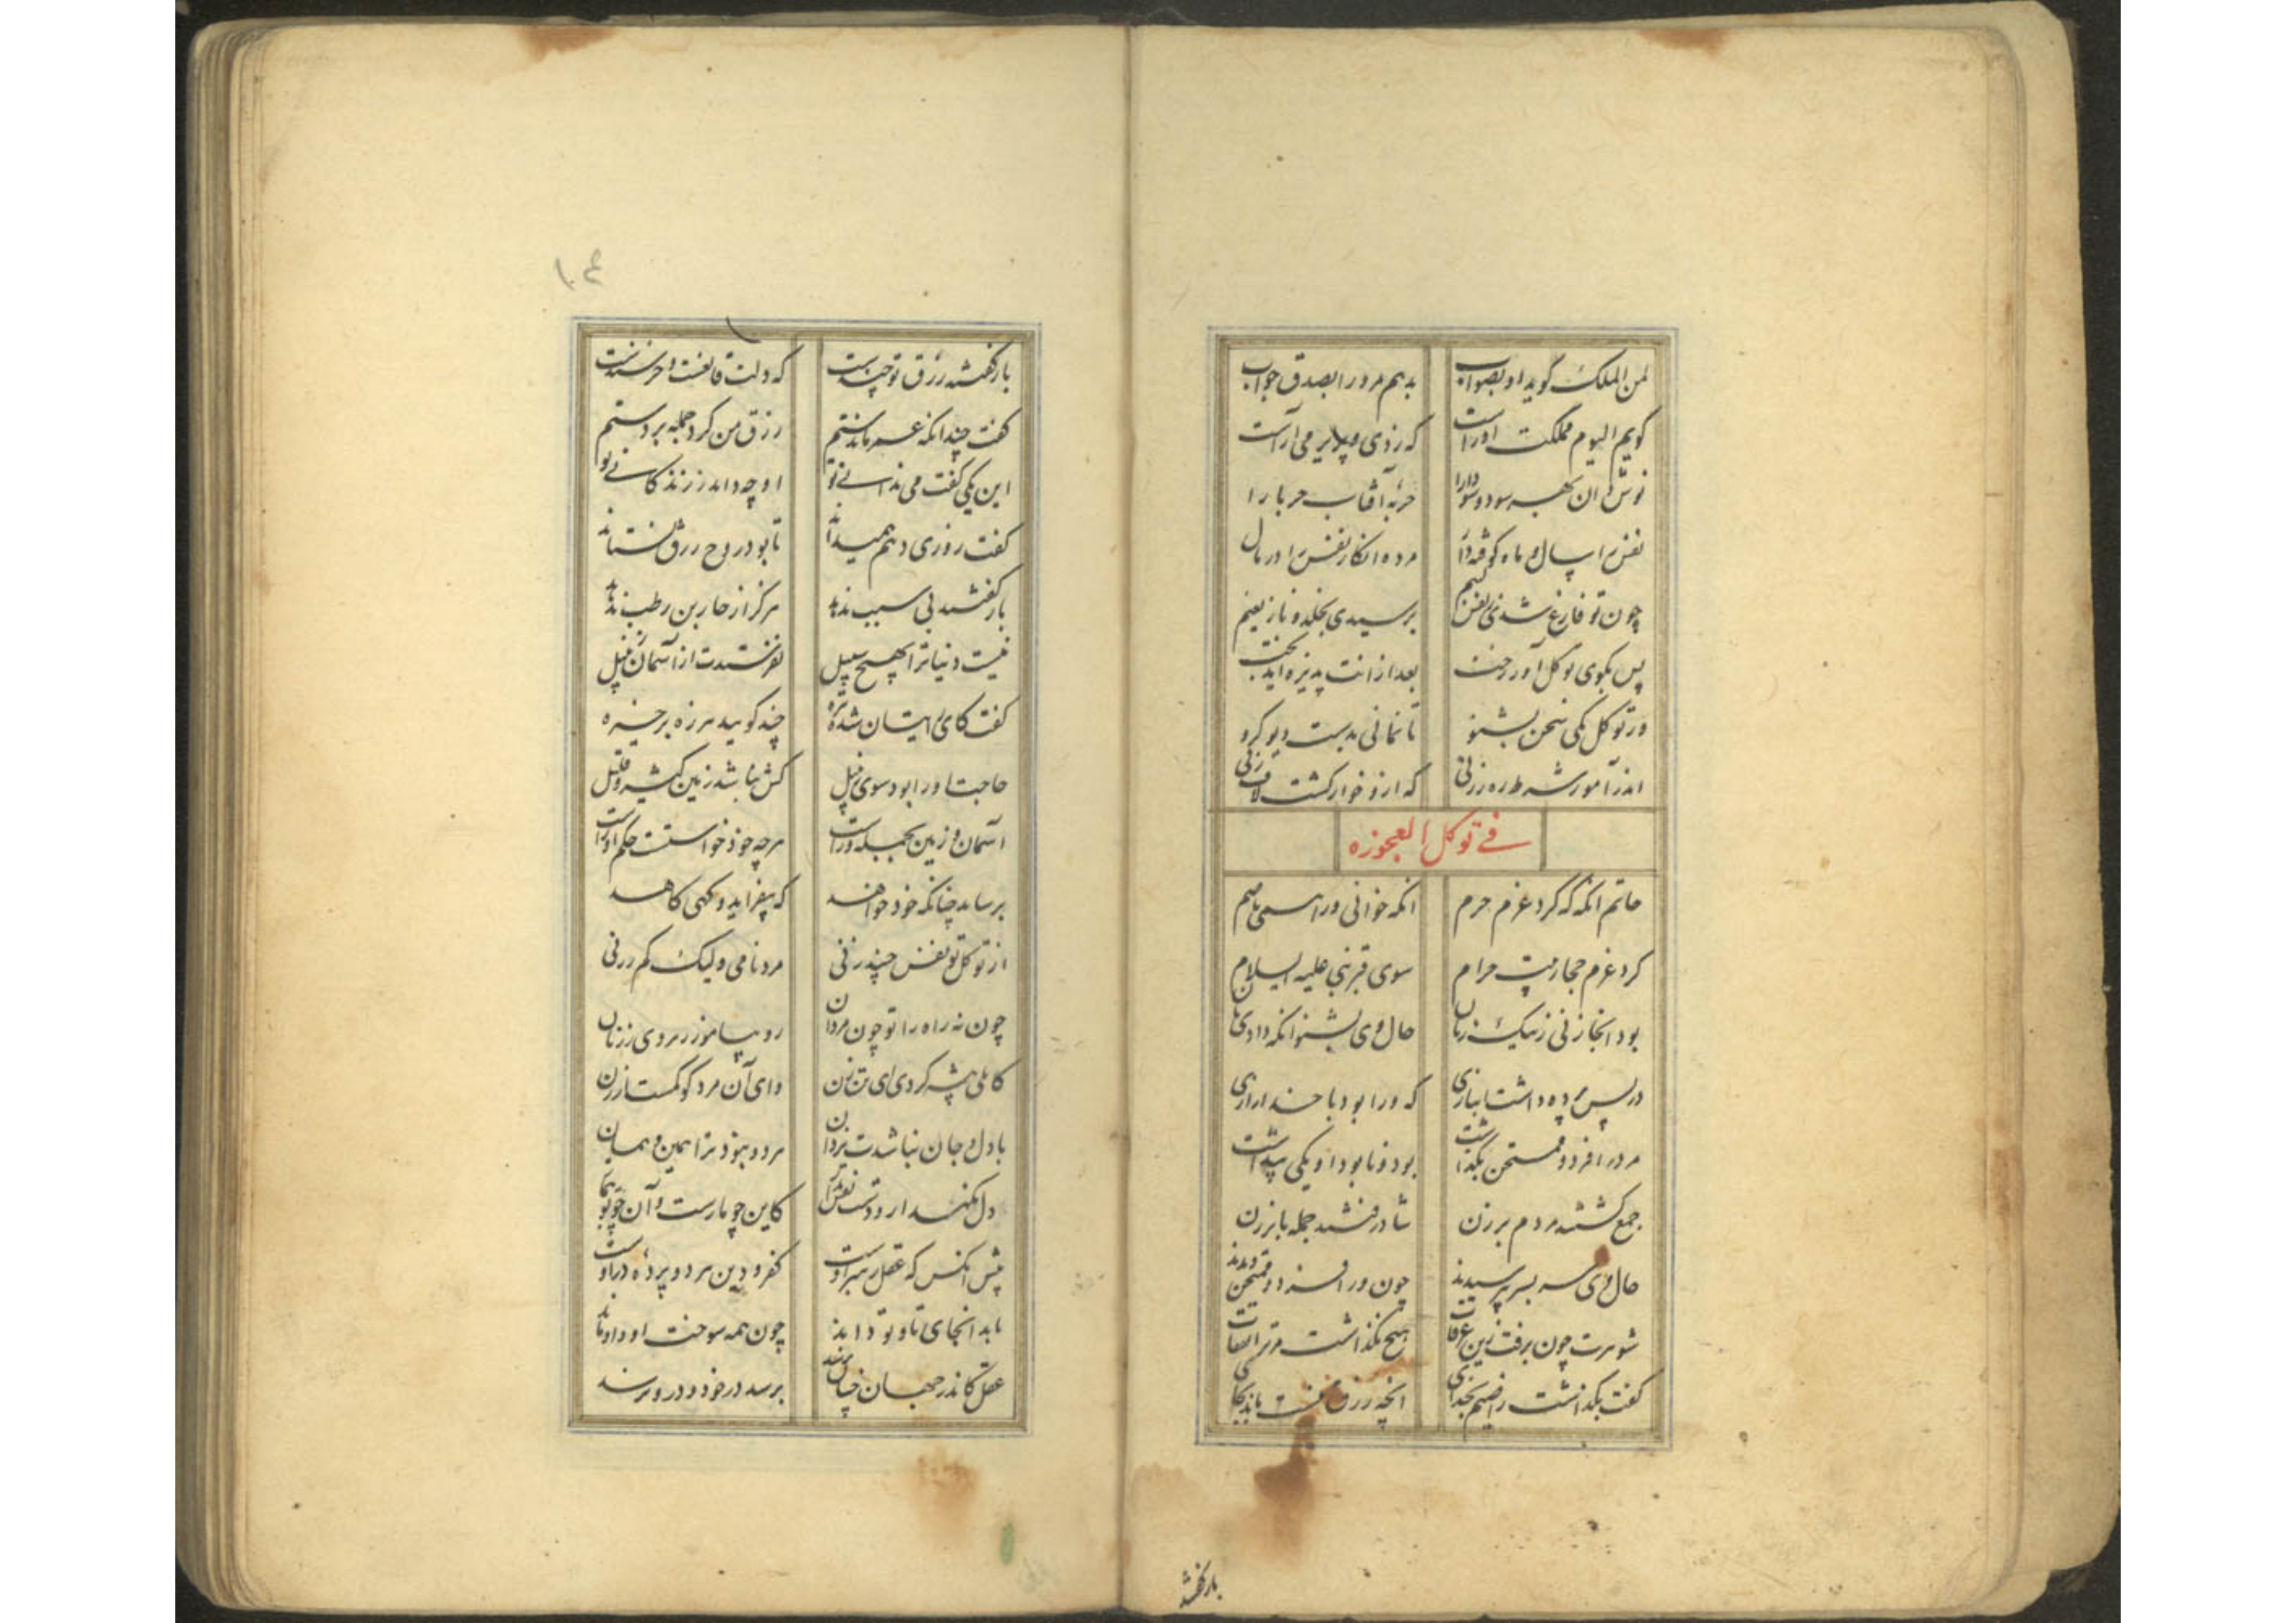 لمن الملک گوید او بصواب بدهم مرورا بصدق جواب
گویم الیوم مملکت اوراست که ز دی و پریر می آراست
نوش دان بهر سود و سودا را حربه آفتاب حربا را
نفس را سال و ماه کوفته دار مرده انگار نفس را در مال
چون تو فارغ شدی ز نفس لئیم برسیدی بخلد و ناز نعیم
پس بکوی توکل آور رخت بعد از انت پذیره آید بخت
در توکل یکی سخن بشنو تا نمانی بدست دیو گرو
اندر آموز شرط ره ز زنی که ازو خوار گشت لاف زنی
فی توکل العجوزه
حاتم آنگه که کرد عزم حرم آنکه خوانی ورا همی باصم
کرد عزم حجاز و بیت حرام سوی قبر نبی علیه السلام
بود آنجا زنی ز نیک زنان حال وی بشنو آنکه دادی نان
در پس پرده داشت انبازی که ورا بود با خدا رازی
مرورا فرد و ممتحن بگذاشت بود و نابود او یکی پنداشت
جمع گشتند مردم برزن شاد رفتند جمله با بر زن
حال وی سر بسر بپرسیدند چون ورا فرد و ممتحن دیدند
شوهرت چون برفت زین عرفات هیچ بگذاشت مر ترا نفقات
گفت بگذاشت راضیم بخدای آنچه رزق منست ماند بجای
بازگفتند
۱۰۴
باز گفتند رزق تو چندست که دلت قانعست و خرسندست
گفت چندانکه عمر ماندستم رزق من کرد جمله بر دستم
این یکی گفت می ندانی تو او چه داند ز زندگانی تو
گفت روزی دهم همیداند تا بود روح رزق نستاند
باز گفتند بی سبب ندهد هرگز از خاربن رطب ندهد
نیست دنیا ترا بهیچ سبیل نفرستدت از آسمان زنبیل
گفت کای رایتان شده تیره چند گویید هرزه بر خیره
حاجت او را بود سوی زنبیل کش نباشد زمین کثیر و قلیل
آسمان و زمین بجمله وراست هر چه خود خواستست حکم اوراست
برساند چنانکه خود خواهد که بیفزاید و گهی کاهد
از توکل تو نفس چند زنی مرد نامی ولیک کم ز زنی
چون نه راه را تو چون مردان رو بیاموز رهروی ز زنان
کاهلی پیشه کردی ای تن زن وای آن مرد کو کمست از زن
با دل و جان نباشدت یزدان هر دو نبود ترا همین و همان
دل نگه دار و دست نفس بدار کاین چو بازست و آن چو بوتیمار
پیش آنکس که عقل رهبر اوست کفر و دین هر دو پرده در اوست
تا بدانجای تا و تو داند چون همه سوخت او و او ماند
عقل کاندر جهان خیال پرسد برسد در خود و درو نرسد